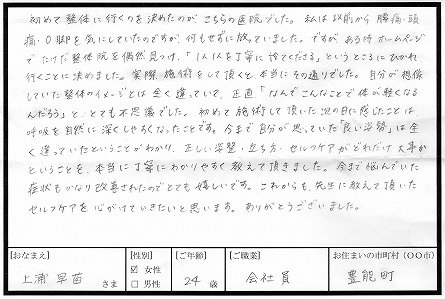 初めて整体に行くのを決めたのが、こちらの医院でした。私は以前から腰痛・頭
痛・O脚を気にしていたのですが、何もせずに放っていました。ですが、ある時ホームページ
でたけだ整体院を偶然見つけ、「1人1人を丁寧に診てくださる」というところにひかれ
行くことに決めました。実際施術をして頂くと、本当にその通りでした。自分が想像
していた整体のイメージとは全く違っていて、正直「なんでこんなことで体が軽くな
るんだろう」と、とても不思議でした。初めて施術して頂いた次の日に感じたことは
呼吸を自然に深くしやすくなったことです。今まで自分が思っていた「良い姿勢」は全
く違っていたということがわかり、正しい姿勢・立ち方・セルフケアがどれだけ大事か
ということを、本当に丁寧にわかりやすく教えて頂きました。今まで悩んでいた
症状もかなり改善されたのでとても嬉しいです。これからも、先生に教えて頂いた
セルフケアを心がけていきたいと思います。ありがとうございました。
[おなまえ] [性別] [ご年齢] [ご職業] お住まいの市町村(○○市)
上浦 早苗 さま ☑ 女性 □ 男性 24 歳 会社員 豊能町